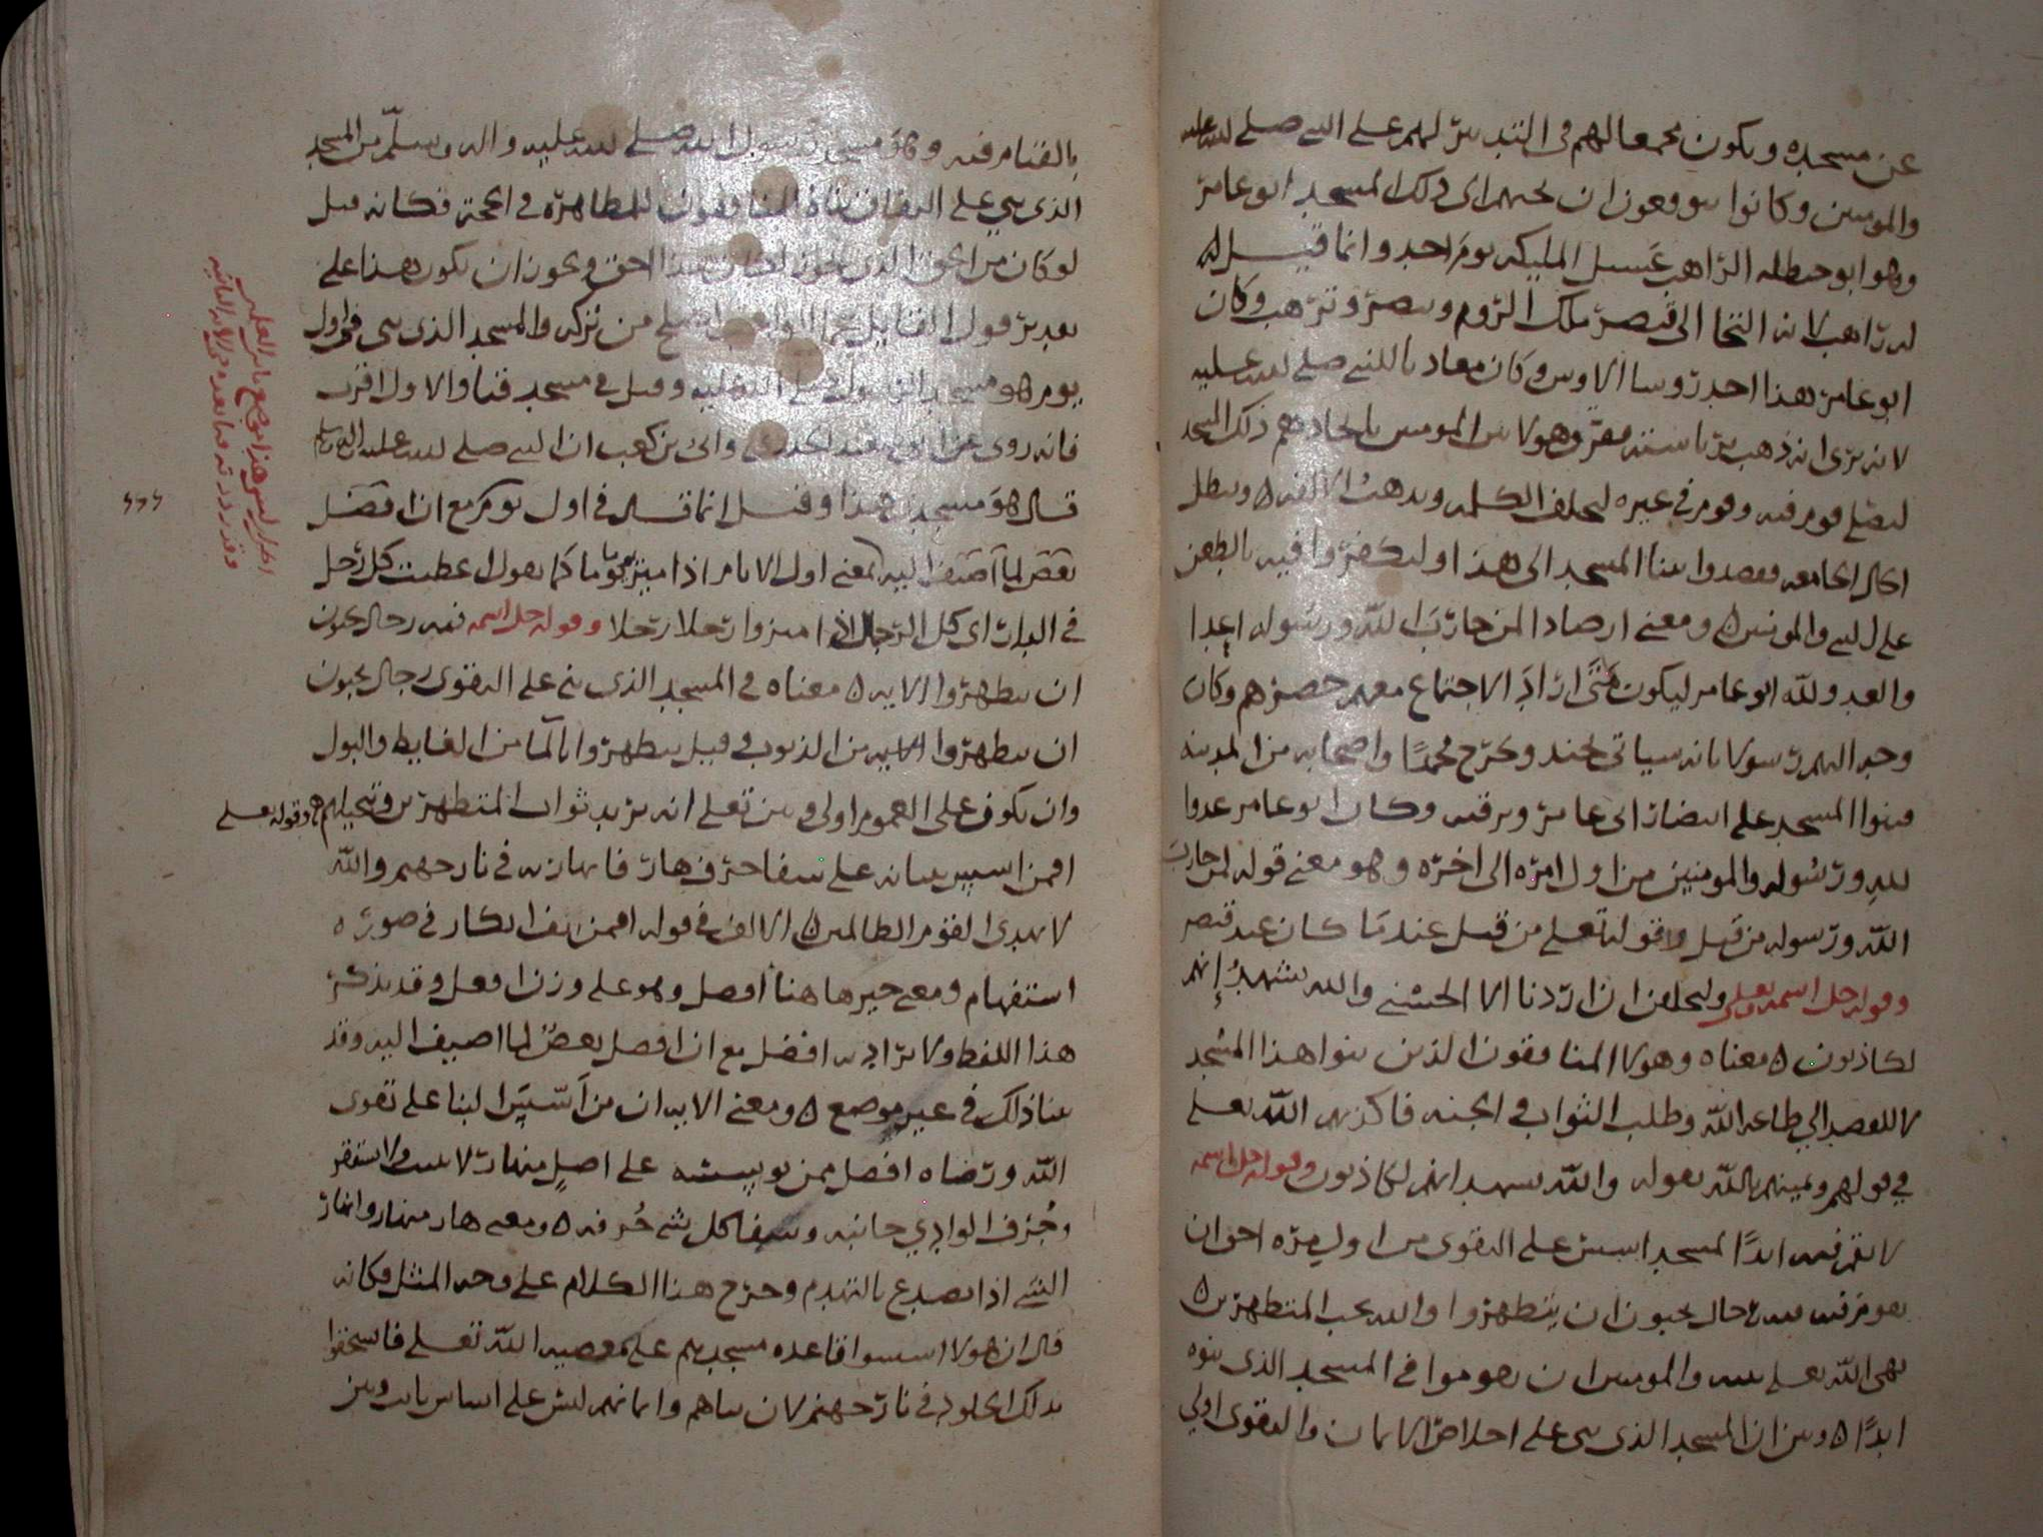 عن مسجده ويكون مجمعا لهم في التدبير لهم على النبي صلى الله عليه
والمومنين وكانوا يتوقعون ان يجيهم اى ذلك المسجد ابو عامر
وهو ابو حنظله الراهب غسيل المليكه يوم احد وانما قيل
له راهب لانه التجا الى قيصر ملك الروم وتنصر وترهب وكان
ابو عامر هذا احد روسا الاوس وكان معاديا للنبي صلى الله عليه
لانه يرى انه ذهب برياسته مفرق هولا بين المومنين باتخاذهم ذلك المسجد
ليصلى قوم فيه وقوم في غيره لتختلف الكلمه ويذهب الالفه ويبطل
الحال الجامعه فقصدوا ببنا المسجد الى هذا وليكفروا فيه بالطعن
على النبي والمومنين ومعنى ارصادا لمن حارب الله ورسوله اعدادا
والعد ولله ابو عامر ليكون متى اراد الاجتماع معهم حصرهم وكان
وجه اليهم رسولا بانه سياتى بجند ويخرج محمدًا واصحابه من المدينه
فبنوا المسجد على انتظار ابى عامر وترقبه وكان ابو عامر عدوا
لله ورسوله والمومنين من اول امره الى اخره وهو معنى قوله لمن حارب
الله ورسوله من قبل وقوله تعلى من قبل عندما كان عند قيصر
وقوله جل اسمه تعلى وليحلفن ان اردنا الا الحسنى والله يشهد إنهم
لكاذبون معناه وهولا المنافقون الذين بنوا هذا المسجد
لا للقصد الى طاعه الله وطلب الثواب في الجنه فاكذبهم الله تعلى
في قولهم ويمينهم بالله بقوله والله يشهد انهم لكاذبون وقوله جل اسمه
لا تقم فيه ابدًا لمسجد اسس على التقوى من اول يوم احق ان
تقوم فيه فيه رجال يحبون ان يتطهروا والله يحب المتطهرين
نهى الله تعلى نبيه والمومنين ان يقوموا في المسجد الذى بنوه
ابدًا وبين ان المسجد الذى بنى على اخلاص الايمان والتقوى اولى
بالقيام فيه وهو مسجد رسول الله صلى الله عليه واله وسلم من المسجد
الذى بنى على النفاق بناه المنافقون للمظاهره في الحجه فكانه قيل
لو كان من الحق الذى يجوز لكان هذا احق ويجوز ان يكون هذا على
تقدير قول القايل عمل الواجب اصلح من تركه والمسجد الذى بنى في اول
يوم هو مسجد الرسول صلى الله عليه وقيل في مسجد قبا والاول اقرب
فانه روى عن ابى سعيد الخدرى وابى بن كعب ان النبي صلى الله عليه اله وسلم
قال هو مسجدى هذا وقيل انما قال في اول يوم مع ان افضل
بعض لما اضيف اليه لمعنى اول الايام اذا ميز يوما يوما كما يقول اعطيت كل رجل
في الدار اى كل الرجال اذا ميزوا رجلا رجلا وقوله جل اسمه فيه رجال يحبون
ان يتطهروا الايه معناه في المسجد الذى بنى على التقوى رجال يحبون
ان يتطهروا من الذنوب وقيل يتطهروا بالما من الغايط والبول
وان يكون على العموم اولى وبين تعلى انه يريد ثواب المتطهرين وتبجيلهم وقوله تعلى
افمن اسس بنيانه على شفا جرف هار فانهار به في نار جهنم والله
لا يهدى القوم الظالمين الالف في قوله افمن الف انكار في صوره
استفهام ومعنى خير ها هنا افضل وهو على وزن افعل وقد يذكر
هذا اللفظ ولا يراد به افضل مع ان افضل بعض لما اضيف اليه وقد
بينا ذلك في غير موضع ومعنى الايه ان من اسس البنا على تقوى
الله ورضاه افضل ممن يوسسه على اصل منهار لا يثبت ولا يستقر
وجرف الوادي جانبه وشفا كل شي حرفه ومعنى هار منهار وانهار
الشي اذا تصدع بالتهدم وخرج هذا الكلام على وجه المثل فكانه
قال ان هولا اسسوا قاعده مسجدهم على معصيه الله تعلى فاستحقوا
بذلك الخلود في نار جهنم لان بناهم وايمانهم ليس على اساس ثابت وبين